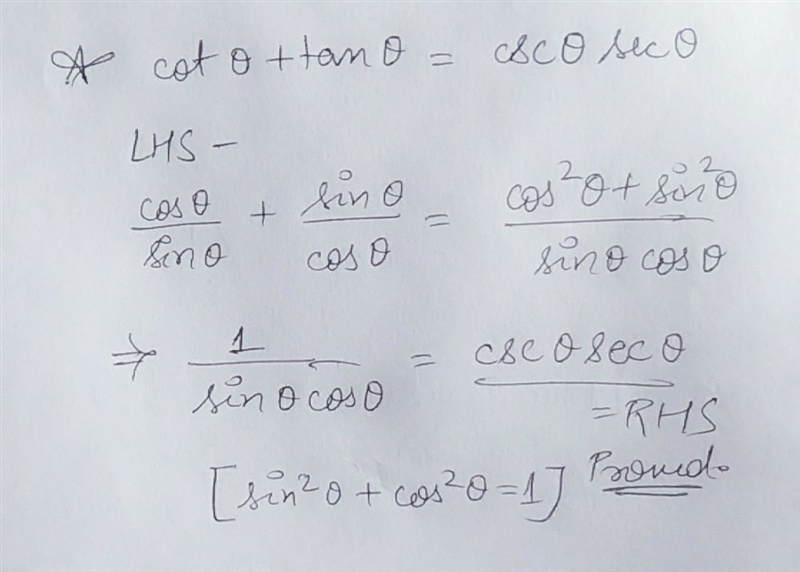 * cot θ + tan θ = csc θ sec θ
LHS –
cos θ / sin θ + sin θ / cos θ = cos²θ + sin²θ / sin θ cos θ
⇒ 1 / sin θ cos θ = csc θ sec θ
= RHS
[sin²θ + cos²θ = 1] Proved.